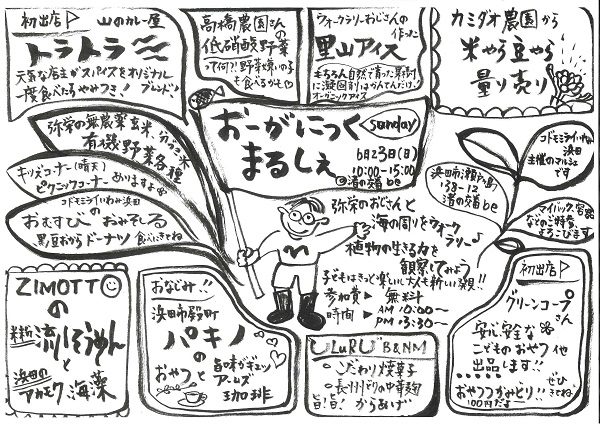 初出店 山のカレー屋
トラトラ
天気な店主がスパイスをオリジナル
ブレンド!
一度食べたらやみつき!
高橋農園さんの
低硝酸野菜
って何?!野菜嫌いの子
も食べるかも
ウォークラリーおじさんの
作った
里山アイス
もちろん自然で育った素材
オーガニックアイス
カミダオ農園から
米やら豆やら
量り売り
弥栄の無農薬玄米、分づき米
有機野菜各種
キッズコーナー(晴天)
ピクニックコーナーありますよ
コドモミライいわみ浜田の
おむすび おみそしる
黒豆おから ドーナツ 食べにきてね
おーがにっく
まるしぇ
Sunday
6月23日(日)
10:00~15:00
@渚の交番be
コドモミライいわみ
浜田
主催のマルシェ
です
浜田市瀬戸ヶ島
138-12
渚の交番be
マイバッグ、容器
などのご持参
よろこびます
弥栄のおじさんと
海の周りをウォーク
ラリー♪
植物の生きる力を
観察してみよう
子どもはきっと楽しい大人も新しい発見!!
参加費▶ 無料
時間▶ AM 10:00~
PM 13:30~
ZIMOTTOの
米粉流しそうめんと
浜田の
アカモク海藻
おなじみ!!
浜田市殿町
パキノの
おやつと
旨味がギュッ
アームズ
珈琲
ULURU B&NM
・こだわり焼菓子
・長州どりの中華麹
からあげ
旨!旨!
初出店
グリーンコープさん
安心安全な
こどものおやつ他
出品します!!
おやつつかみどり!!
100円だよ
ぜひ
きてね